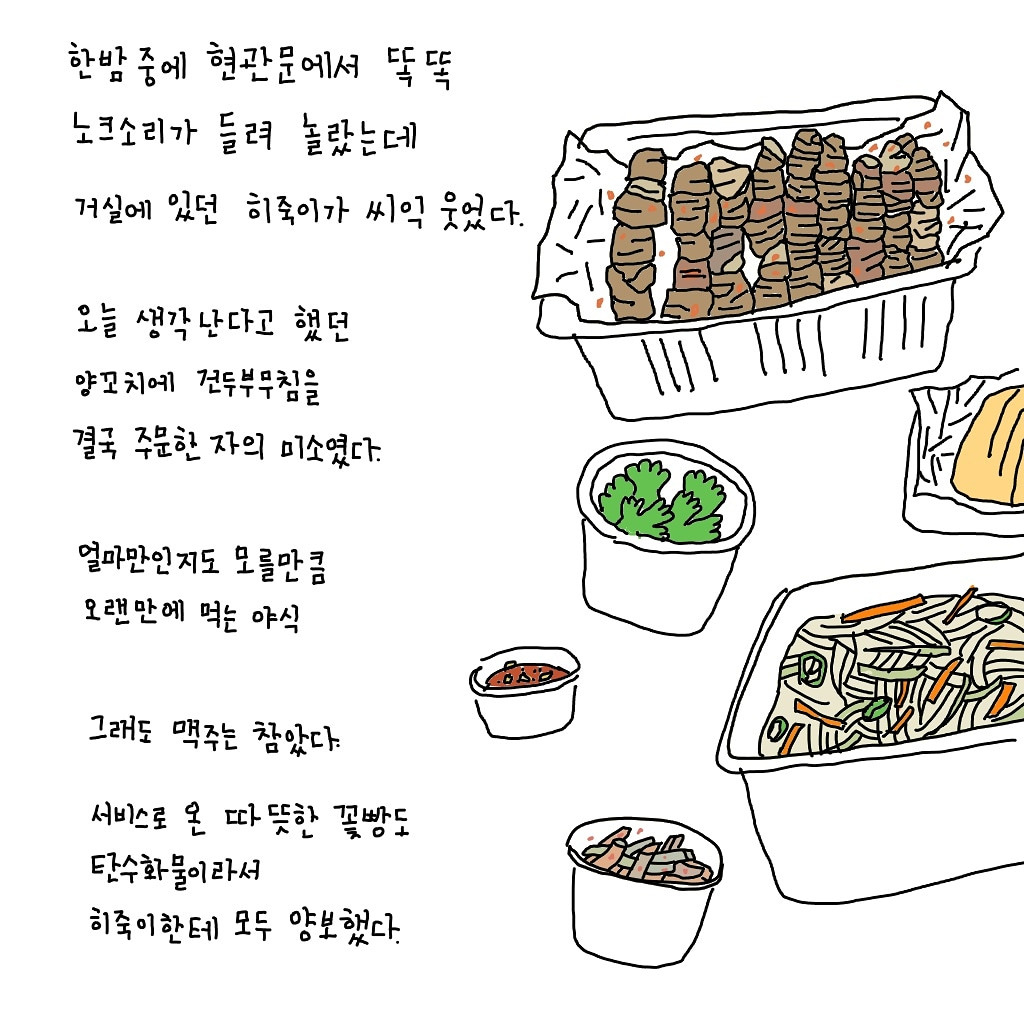 한밤중에 현관문에서 똑똑
노크소리가 들려 놀랐는데
거실에 있던 히죽이가 씨익 웃었다.
오늘 생각난다고 했던
양꼬치에 건두부무침을
결국 주문한 자의 미소였다.
얼마만인지도 모를만큼
오랜만에 먹는 야식
그래도 맥주는 참았다.
서비스로 온 따뜻한 꽃빵도
탄수화물이라서
히죽이한테 모두 양보했다.